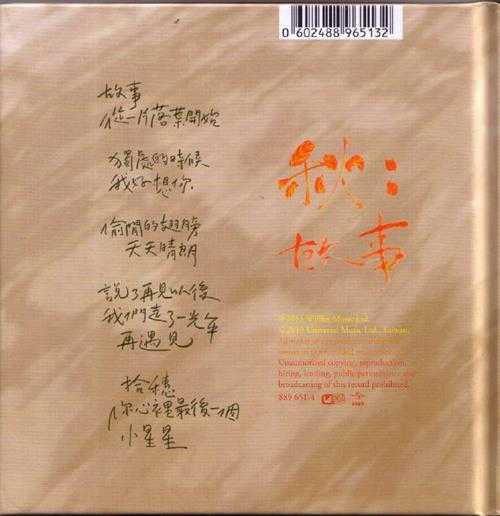 0 602488 965132
故事
從一片落葉開始
獨處的時候
我好想你
偷閒的翅膀
天天晴朗
說了再見以後
我們遠了一光年
再遇見
拾穗
你心裡最後一個
小星星
秋：
故事
Universal Music Ltd., Taiwan.
Unauthorized copying, reproduction,
hiring, lending, public performance and
broadcasting of this record prohibited.
889 651-4